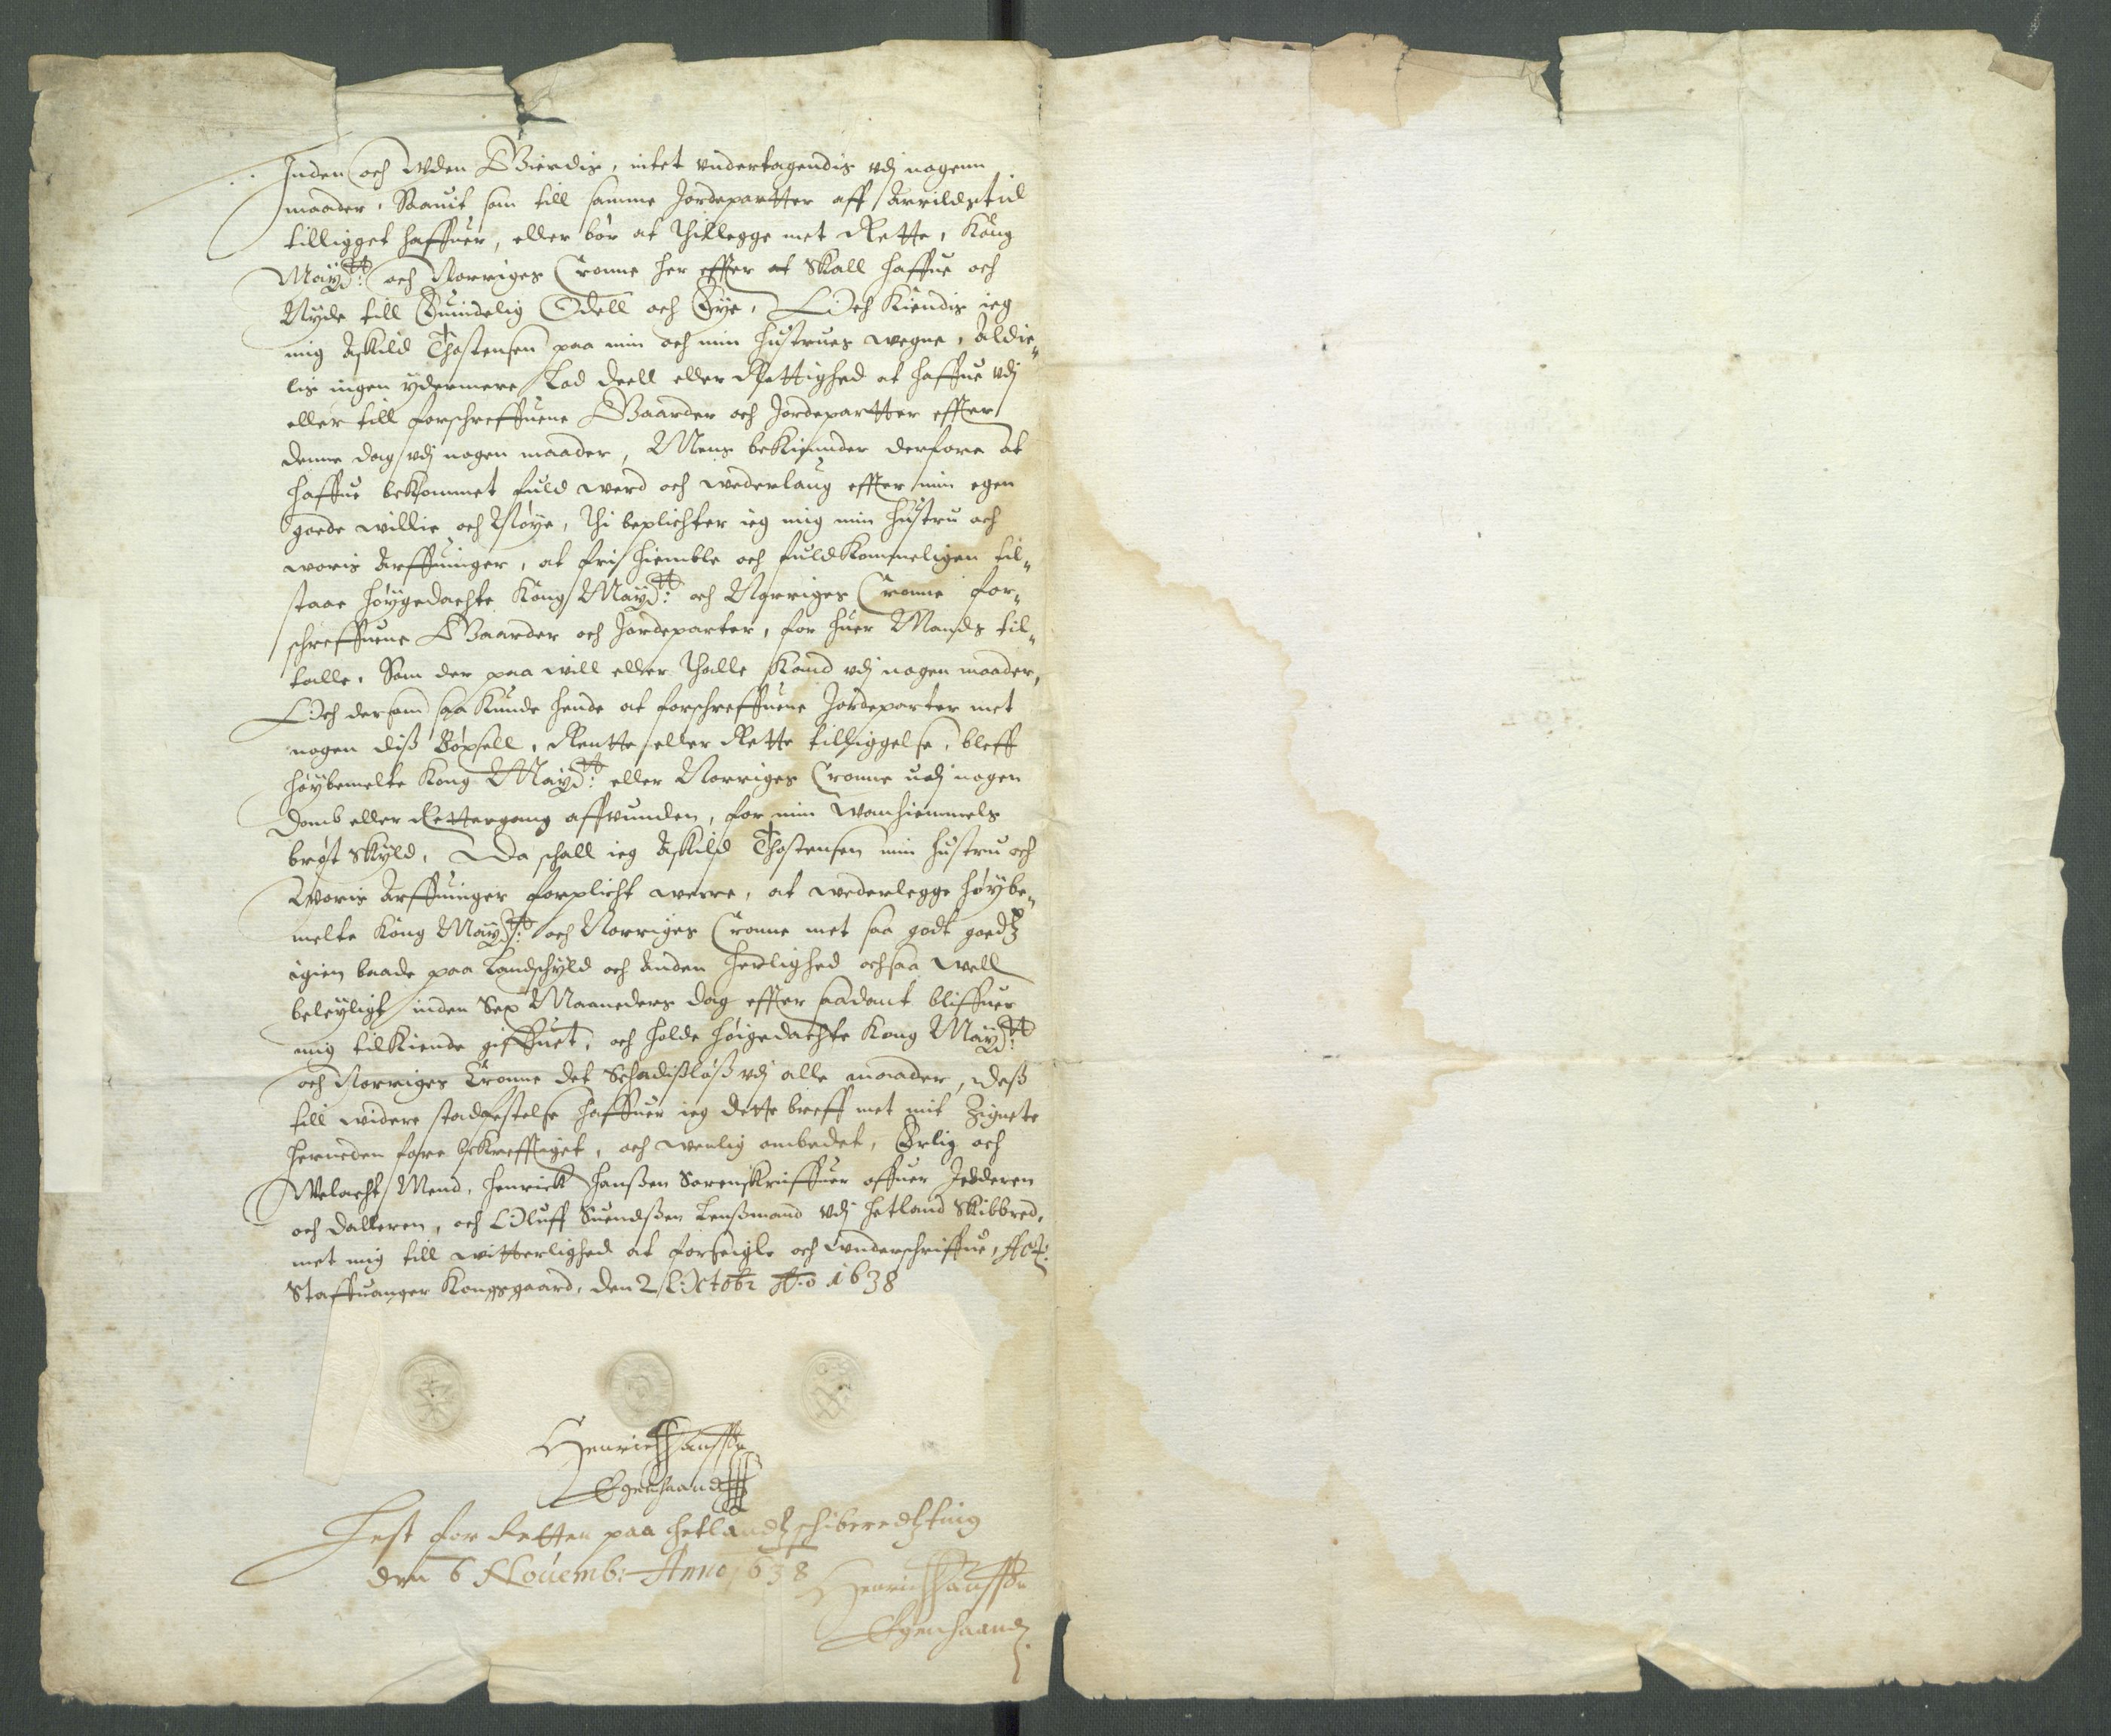 Inden och Uden Gierdis, intet undertagendis udj nogenn
maader, Saauit som till samme Jordepartter aff Arrildstid
tilligget haffuer, eller bør at thillegge met Rette, Kong
Mayd:tt och Norriges Cronne her effter at skall haffue och
Nyde till Euindelig Odell och Eye, Och kiendis ieg
mig Askild Thostensen paa min och min Hustrues wegne, Aldie-
lis ingen ydermere Lod deell eller Rettighed at haffue udj
eller till forschreffuene Gaarder och Jordepartter effter
denne dag udj nogen maader, Mens bekiennder derfore at
haffue bekommet fuld werd och wederlaug effter min egen
goede willie och Nøye, Thi beplichter ieg mig min Hustru och
woris Arffuinger, at frj hiemble och fuldkommeligen til-
staae høygedachte Kong Mayd:tt och Norriges Cronne for-
schreffuene Gaarder och Jordeparter, for huer Mands til-
talle, Som der paa will eller Thalle kand udj nogen maader,
Och dersom saa kunde hende at forschreffuene Jordeparter met
nogen diß Böxsell, Rentte eller Rette tilliggelse, bleff
høybemelte Kong Mayd:tt eller Norriges Cronne udj nogen
Domb eller Rettergang affvunden, for min Wanhiemmels
brøst skyld, Da schall ieg Askild Thostensen min Hustru och
Woris Arffuinger forplicht werre, at wederlegge høybe-
melte Kong Mayd:tt och Norriges Cronne met saa godt goedtz
igien baade paa Landschyld och anden herlighed och saa well
beleyligt inden Sex Maaneders dag effter saadant bliffuer
mig tilkiende giffuet, och holde høigedachte Kong Mayd:tt
och Norriges Cronne det Schadißløß udj alle maader, deß
till widere stadfestelse haffuer ieg dette breff met mit Zignete
herneden fore bekrefftiget, och wenlig ombedet, Erlig och
Welacht Mend, Henrick Hanßen Sorenskriffuer offuer Jedderen
och Dallerne, och Oluff Suendßen Lenßmand udj Hetland Skibbred,
met mig till witterlighed at forseigle och underschriffue, Act:
Staffuanger Kongsgaard, den 2 Octobr Ao 1638
Henrich Hanßen
Egenhaand
Lest for Retten paa Hetlandtz schiberedtz ting
den 6 Nouemb: Anno 1638
Henrich Hanßen
Egenhaand